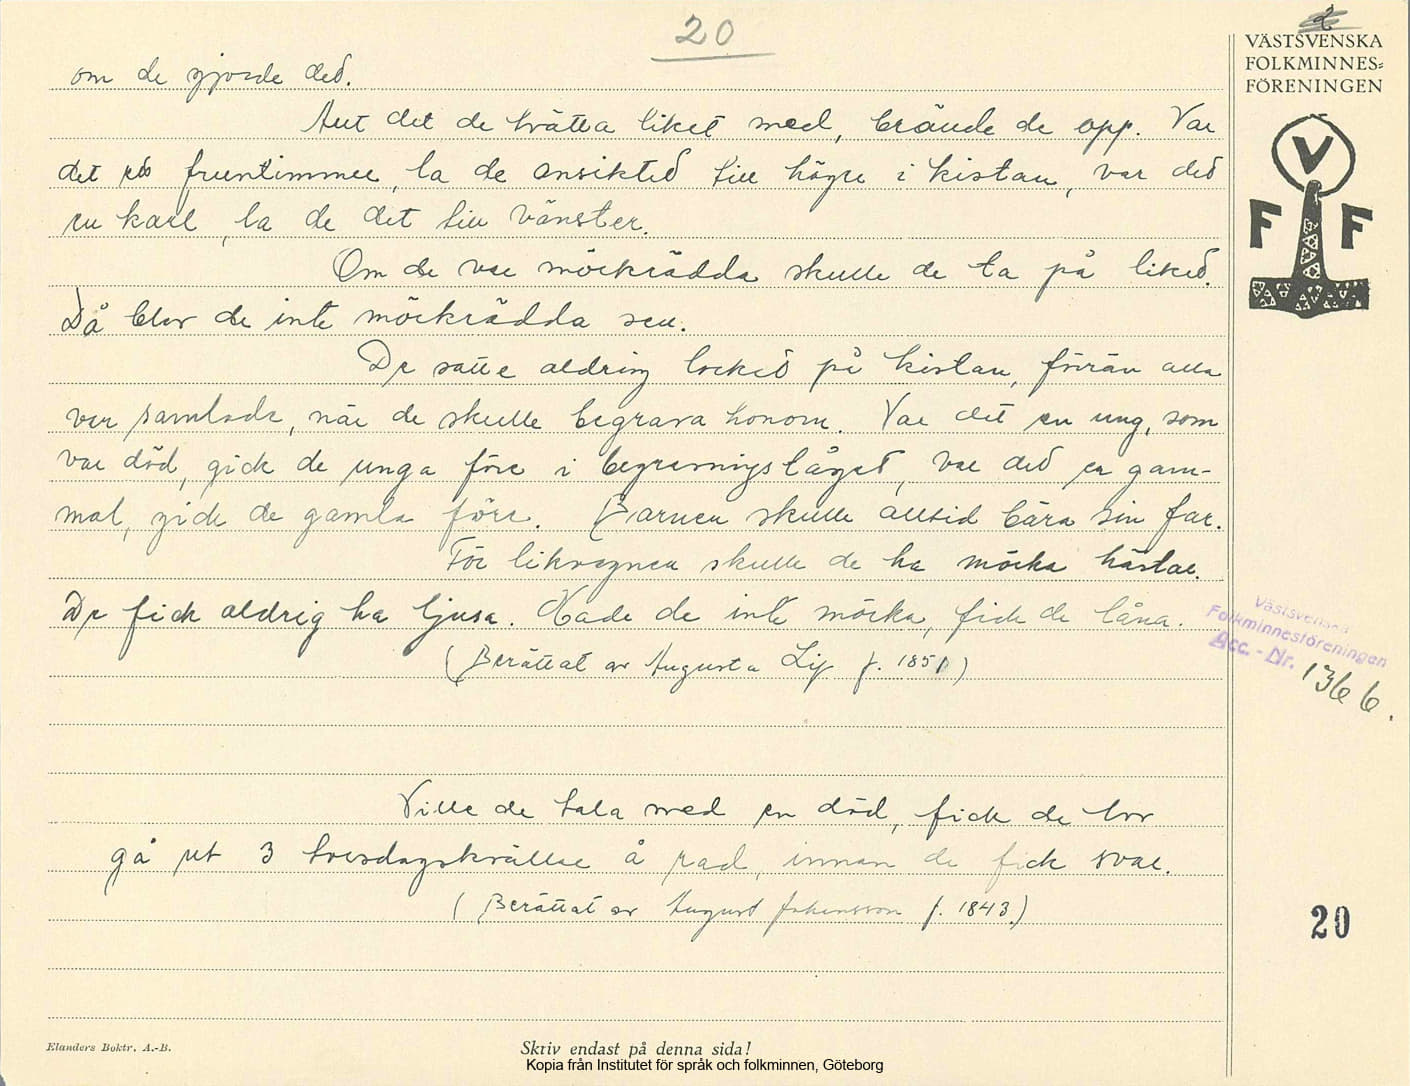 20
2
VÄSTSVENSKA
FOLKMINNES=
FÖRENINGEN
V
F F
om de gjorde ded.
Allt det de tvätta liket med, brände de opp. Var
det ett fruentimmer, la de ansikted till högre i kistan, var ded
en karl, la de det till vänster.
Om de var mörkrädda skulle de ta på liked.
Då blev de inte mörkrädda sen.
De satte aldrig locked på kistan, förrän alla
var samlade, när de skulle begrava honom. Var det en ung, som
var död, gick de unga före i begravningståged, var ded en gam-
mal, gick de gamla före. Barnen skulle alltid bära sin far.
För likvagnen skulle de ha mörka hästar.
De fick aldrig ha ljusa. Hade de inte mörka, fick de låna.
(Berättat av Augusta f. 1851)
Västsvenska
Folkminnesföreningen
Acc. - Nr. 1366.
Ville de tala med en död, fick de lov
gå ut 3 torsdagskvällar å rad, innan de fick svar.
(Berättat av August Johansson f. 1843.)
20
Elanders Boktr. A.-B.
Skriv endast på denna sida!
Kopia från Institutet för språk och folkminnen, Göteborg